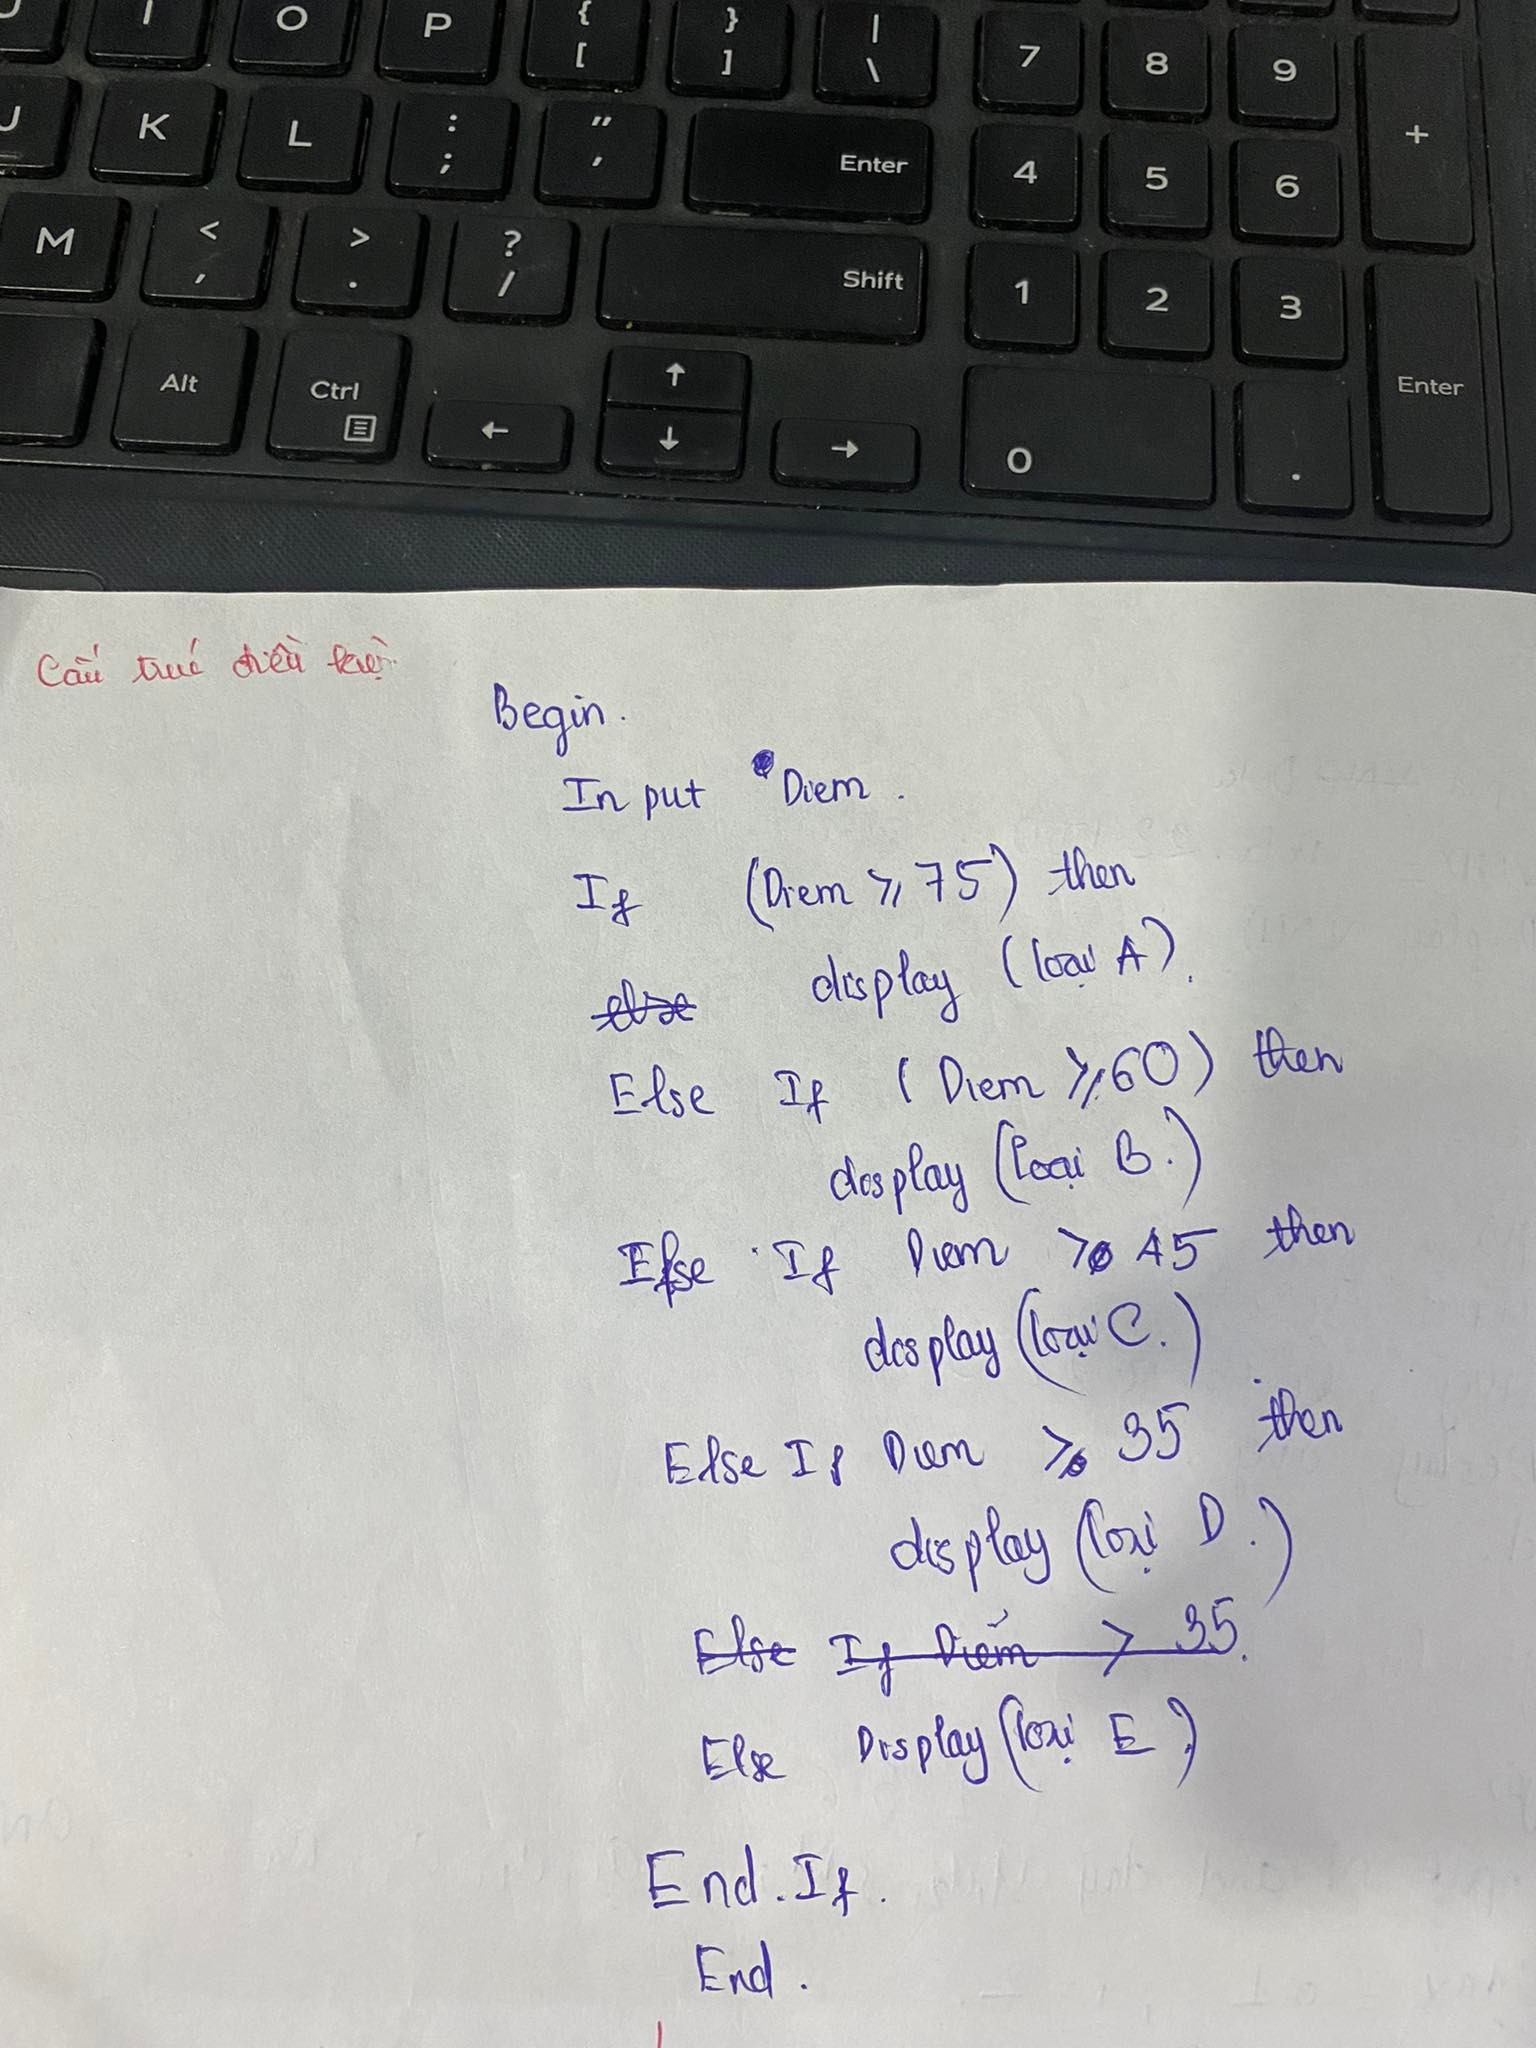 U I O P { [ } ] | \ 7 8 9 +
J K L : ; " ' Enter 4 5 6
M < , > . ? / Shift 1 2 3 Enter
Alt Ctrl ← ↑ ↓ → 0 .
Cấu trúc điều kiện
Begin.
Input Diem.
If (Diem ≥ 75) then
display (loại A).
else
Else If (Diem ≥ 60) then
display (loại B.)
Else If Diem ≥ 45 then
display (loại C.)
Else If Diem ≥ 35 then
display (loại D.)
Else If Diểm > 35.
Else Display (loại E.)
End.If.
End.